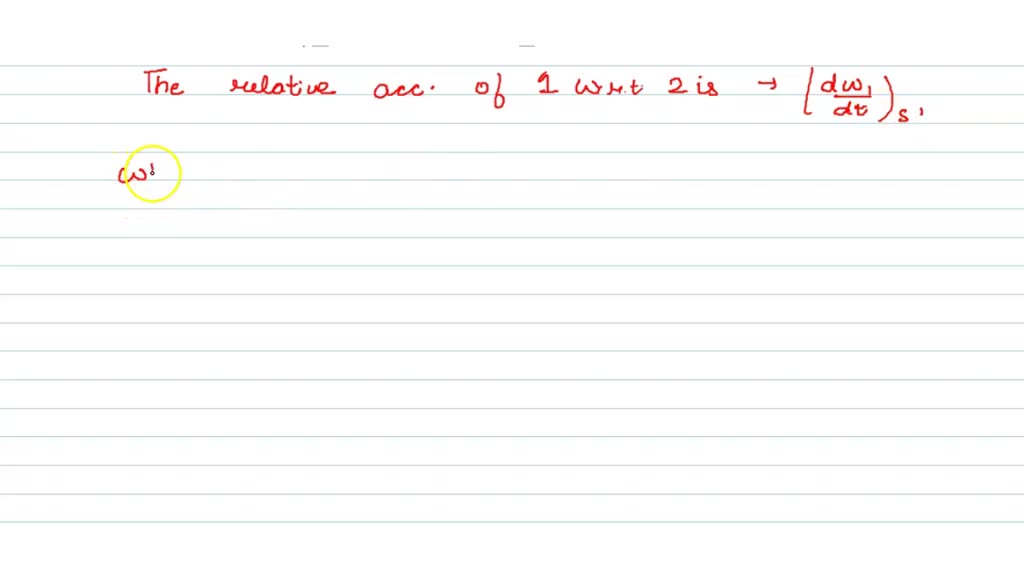 The relative acc. of 1 w.r.t 2 is → (dω₁/dt)ₛ'
ω'